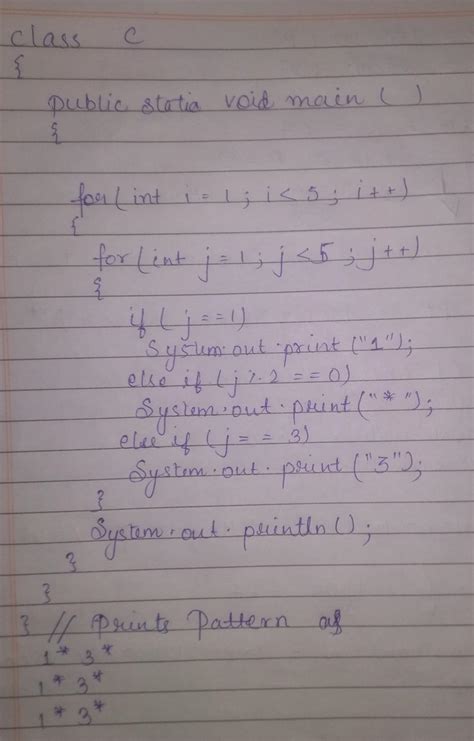 class C
{
public static void main ( )
{
for(int i = 1 ; i < 5 ; i++)
{
for(int j = 1 ; j < 5 ; j++)
{
if ( j == 1)
System.out.print ("1");
else if (j % 2 == 0)
System.out.print("*");
else if (j == 3)
System.out.print ("3");
}
System.out.println();
}
}
} // Prints Pattern as
1 * 3 *
1 * 3 *
1 * 3 *